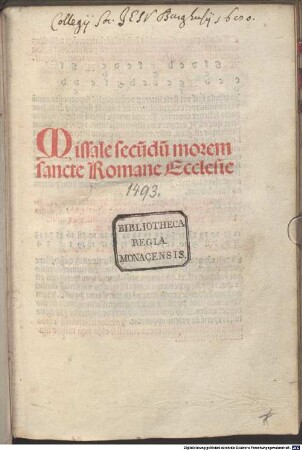 Collegij Soc. JESV Burghusij 1600.
Missale secūdū morem
sancte Romane Ecclesie
1493.
BIBLIOTHECA
REGIA
MONACENSIS.